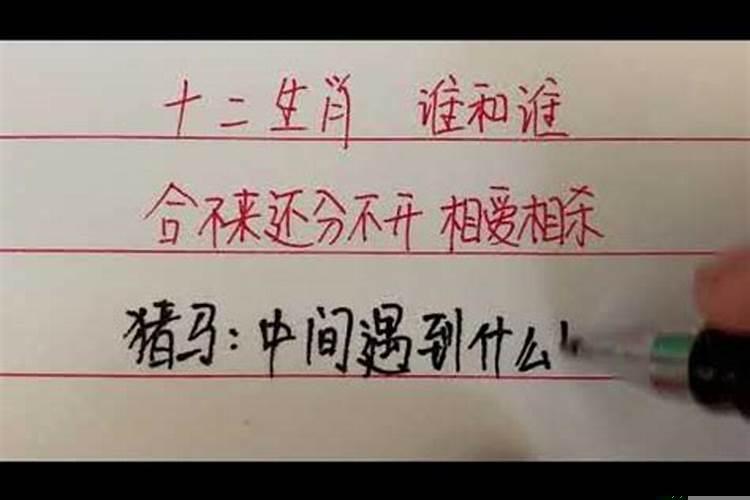 十二生肖 谁和谁
合不来还分不开 相爱相杀
猪马:中间遇到什么